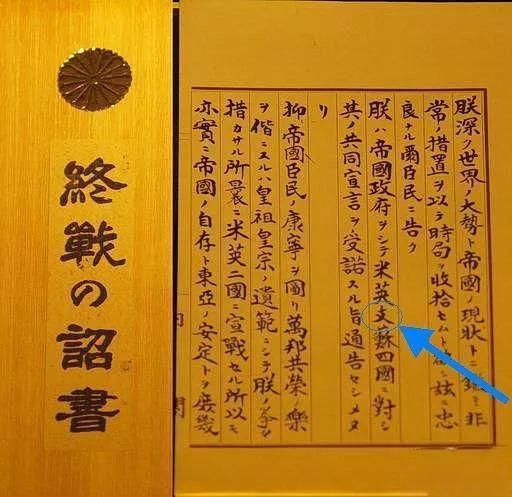 終戰の詔書
朕深ク世界ノ大勢ト帝國ノ現状トニ鑑ミ非
常ノ措置ヲ以テ時局ヲ收拾セムト欲シ茲ニ忠
良ナル爾臣民ニ告ク
朕ハ帝國政府ヲシテ米英支蘇四國ニ對シ
其ノ共同宣言ヲ受諾スル旨通告セシメタ
リ
抑帝國臣民ノ康寧ヲ圖リ萬邦共榮ノ樂
ヲ偕ニスルハ皇祖皇宗ノ遺範ニシテ朕ノ拳々
措カサル所曩ニ米英二國ニ宣戰セル所以モ
亦實ニ帝國ノ自存ト東亞ノ安定トヲ庶幾